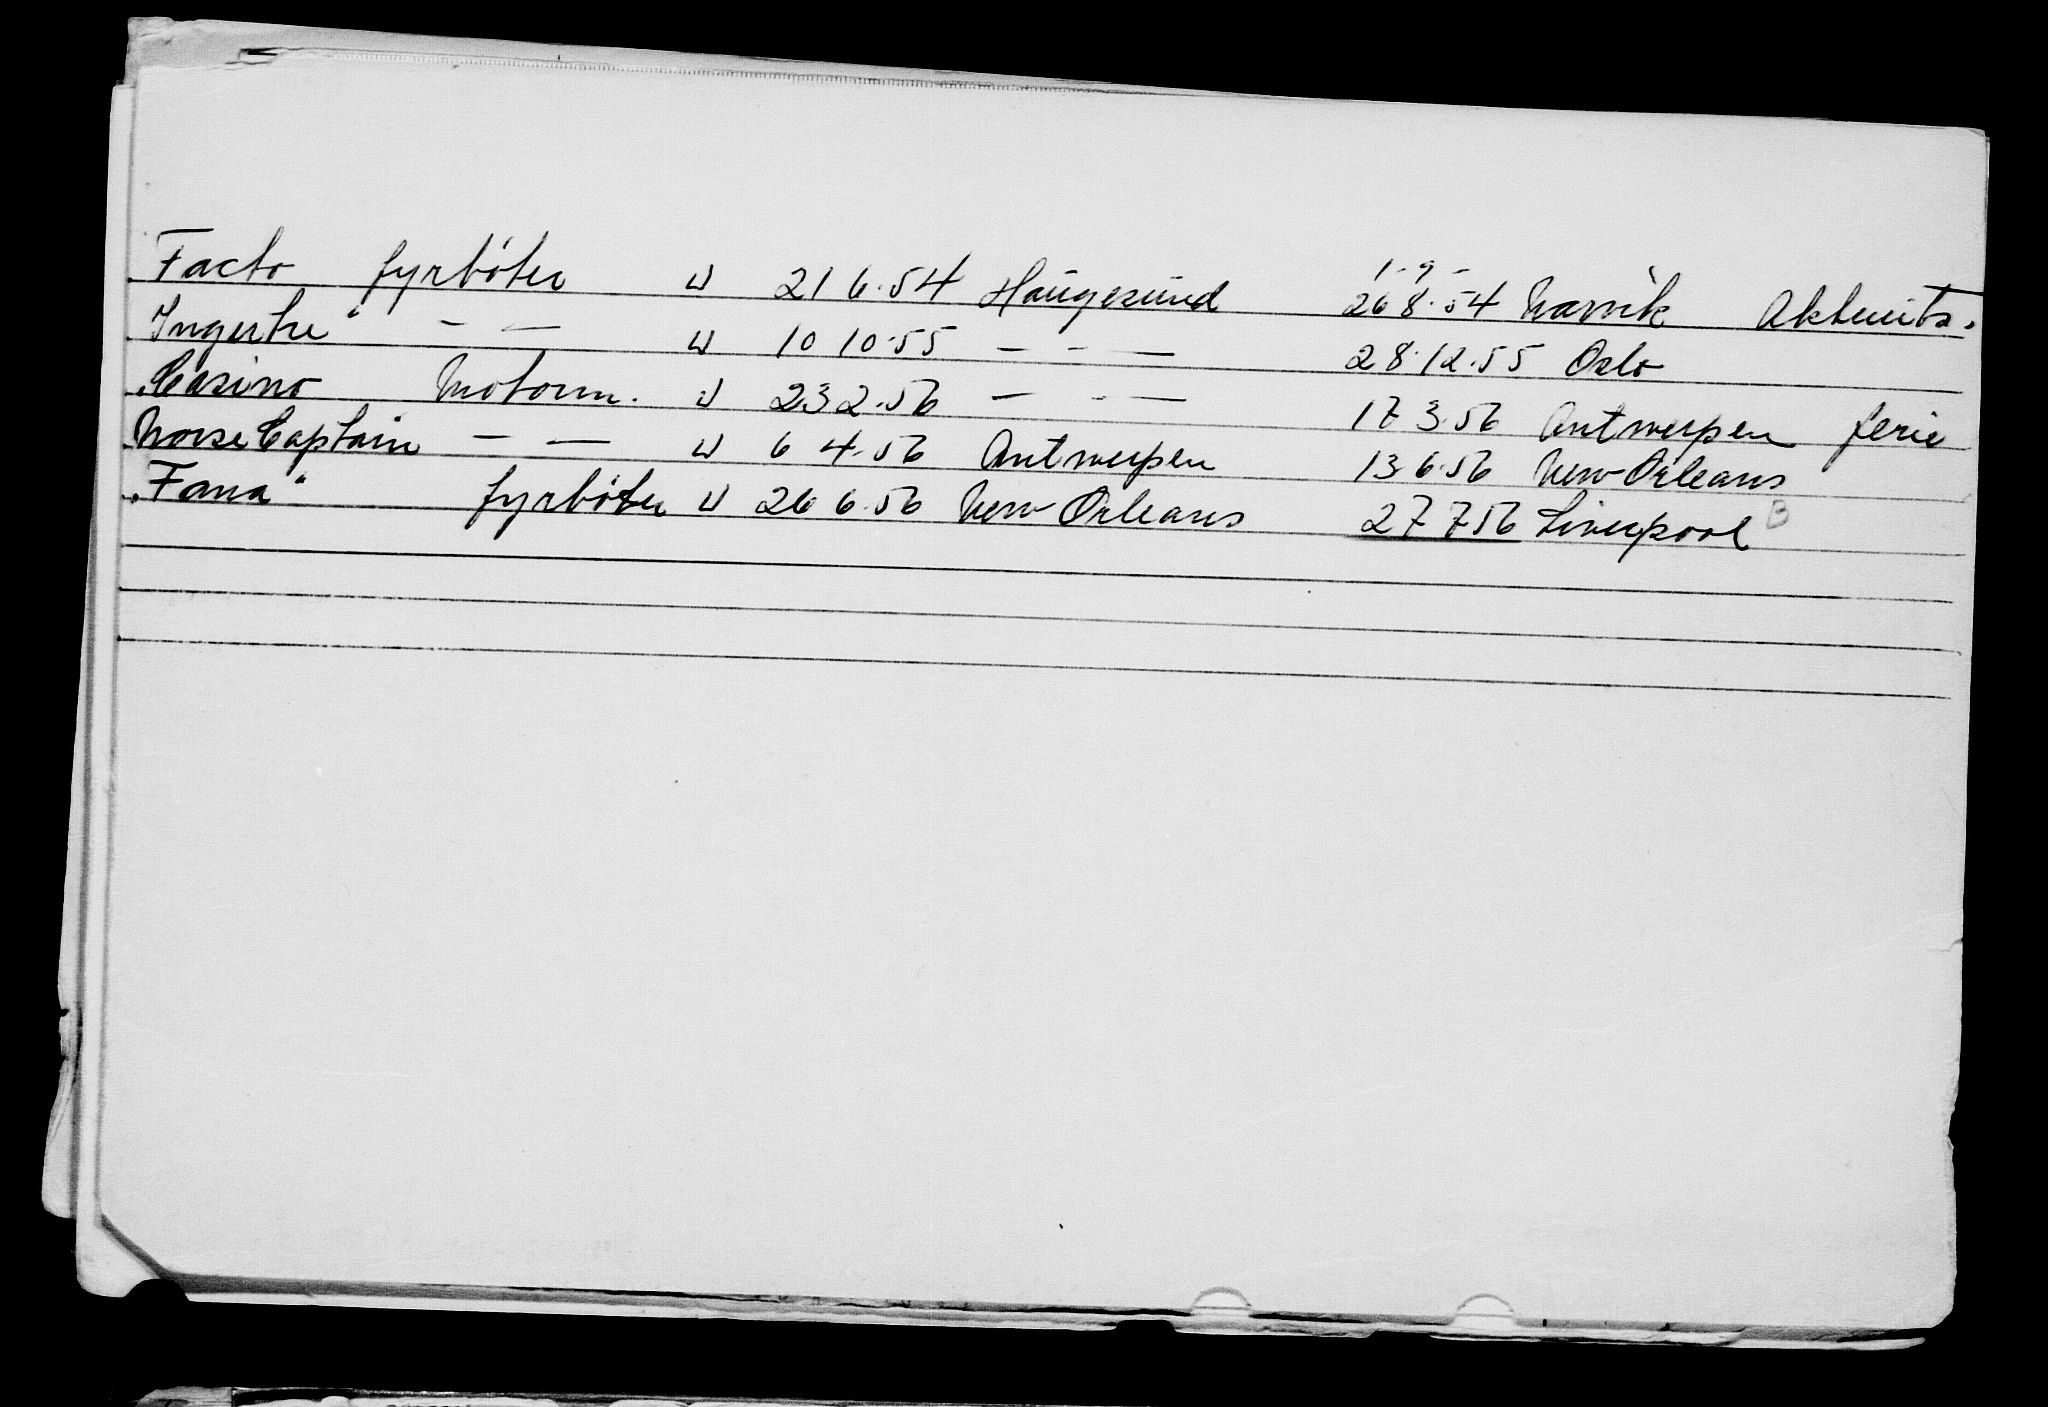 Facto fyrbøter u 21 6.54 Haugesund 1-9- 26 8.54 Narvik Aktenits.
Ingertre" — — u 10 10.55 — - — 28.12.55 Oslo
"Casino Motorm. u 23 2.56 — - — 17 3.56 Antwerpen ferie
Norse Captain — — u 6 4.56 Antwerpen 13 6.56 New Orleans
"Fana" fyrbøter u 26 6.56 New Orleans 27 7 56 Liverpool B